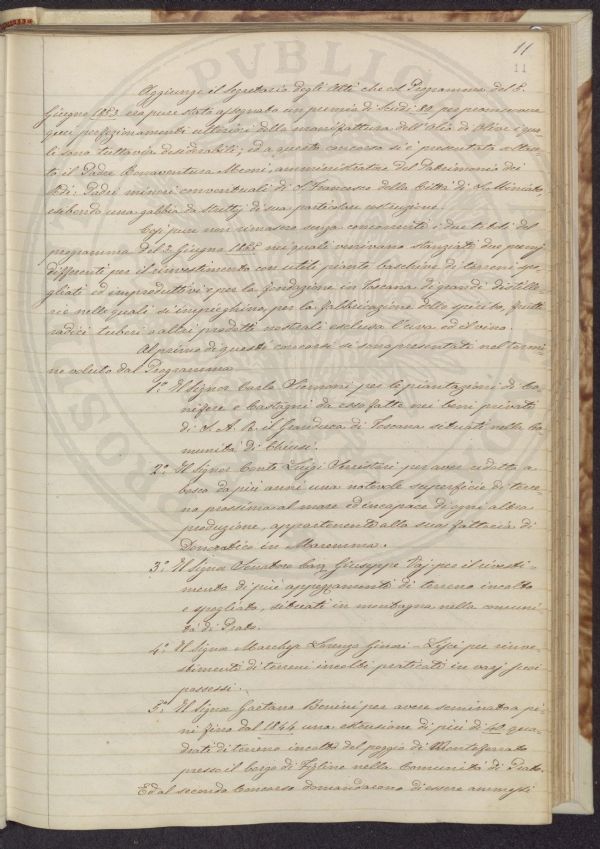 11
11
Aggiunge il Segretario degli Atti che col Programma del 5.
Giugno 1853 era pure stato assegnato un premio di Scudi 80, per promuovere
quei perfezionamenti ulteriori della manifattura dell'Olio di Olive i qua-
li sono tuttavia desiderabili; ed a questo concorso si è presentato soltan-
to il Padre Bonaventura Meoni, amministratore del Patrimonio dei
RR. Padri minori conventuali di S. Francesco della Città di S. Miniato,
esibendo una gabbia da strettoj di sua particolare costruzione.
Così pure non rimasero senza concorrenti i due titoli del
programma del 2. Giugno 1852 nei quali venivano stanziati due premj
differenti per il rinvestimento con utili piante boschive di terreni spo-
gliati ed improduttivi e per la fondazione in Toscana di grandi distille-
rie nelle quali si impieghino, per la fabbricazione dello spirito, frutti
radici tuberi o altri prodotti nostrali esclusa l'uva ed il vino.
Al primo di questi concorsi si sono presentati nel termi-
ne voluto dal Programma
1.° Il Signor Carlo Siemoni per le piantazioni di Co-
nifere e Castagni da esso fatte nei beni privati
di S. A. R. il Granduca di Toscana situati nella Co-
munità di Chiusi.
2.° Il Signor Conte Luigi Serristori per aver ridotta a
bosco da più anni una notevole superficie di terre-
no prossima al mare ed incapace di ogni altra
produzione, appartenente alla sua fattoria di
Donoratico in Maremma.
3.° Il Signor Senatore Cav. Giuseppe Vaj per il rivesti-
mento di più appezzamenti di terreno incolto
e spogliato, situati in montagna nella comuni-
tà di Prato.
4.° Il Signor Marchese Lorenzo Ginori-Lisci per rinve-
stimenti di terreni incolti praticati in varj suoi
possessi.
5.° Il Signor Gaetano Benini per avere seminato a pi-
ni fino dal 1844 una estensione di più di 40 qua-
drati di terreno incolto del poggio di Monteferrato
presso il borgo di Figline nella Comunità di Prato.
Ed al secondo Concorso domandarono di essere ammessi